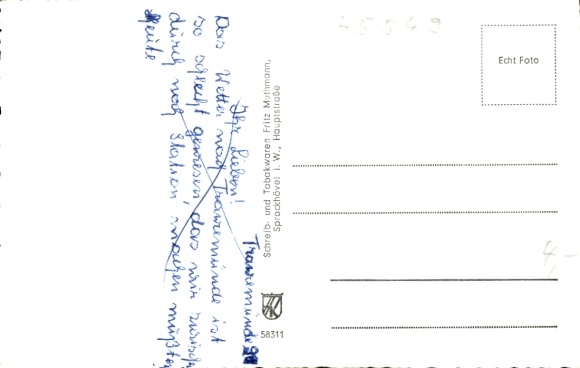 45549
Echt Foto
Schreib- und Tabakwaren Fritz Muthmann,
Sprockhövel i. W., Hauptstraße
58311
4,-
Travemünde
Ihr Lieben!
Das Wetter nach Travemünde ist
so schlecht gewesen, das wir zwische
durch noch Station machen mußte
Heute